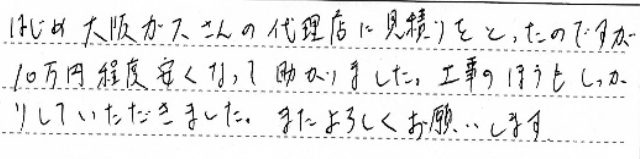 はじめ大阪ガスさんの代理店に見積りをとったのですが
10万円程度安くなって助かりました。工事のほうもしっか
りしていただきました。またよろしくお願いします